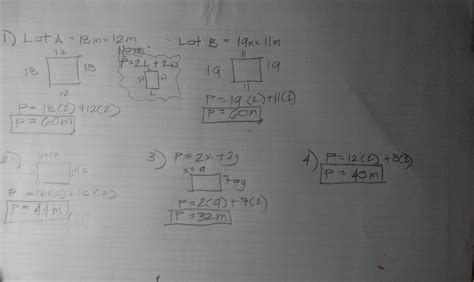 1) Lot A = 18m x 12m
Lot B = 19m x 11m
NOTE:
P=2L+2W
12
18
18
12
L
11
19
19
11
P= 18(2)+12(2)
P= 60m
P= 19(2)+11(2)
P= 60m
2)
P= 44m
3) P=2x+2y
x=9
7=y
P=2(9)+7(2)
P=32m
4) P=12(2)+8(2)
P= 40m